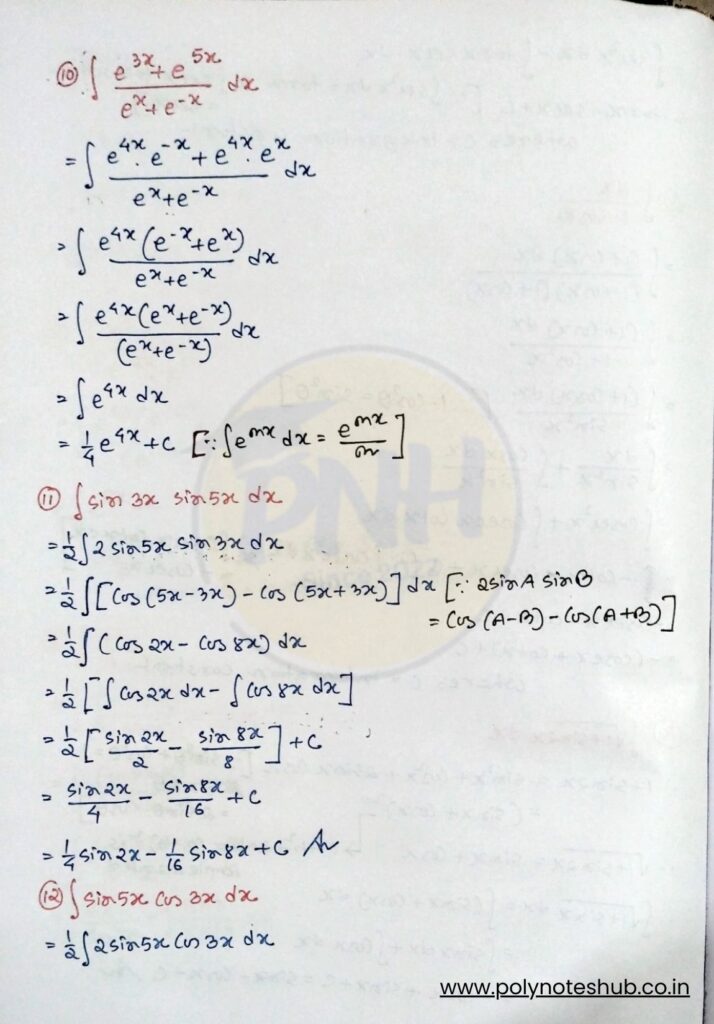 ⑩ ∫ (e^{3x} + e^{5x})/(e^x + e^{-x}) dx
= ∫ (e^{4x} · e^{-x} + e^{4x} · e^x)/(e^x + e^{-x}) dx
= ∫ e^{4x}(e^{-x} + e^x)/(e^x + e^{-x}) dx
= ∫ e^{4x}(e^x + e^{-x})/(e^x + e^{-x}) dx
= ∫ e^{4x} dx
= 1/4 e^{4x} + C [∵ ∫ e^{mx} dx = e^{mx}/m]
⑪ ∫ sin 3x sin 5x dx
= 1/2 ∫ 2 sin 5x sin 3x dx
= 1/2 ∫ [Cos (5x-3x) - Cos (5x+3x)] dx [∵ 2 sin A sin B
= Cos (A-B) - Cos (A+B)]
= 1/2 ∫ (Cos 2x - Cos 8x) dx
= 1/2 [∫ Cos 2x dx - ∫ Cos 8x dx]
= 1/2 [sin 2x/2 - sin 8x/8] + C
= sin 2x/4 - sin 8x/16 + C
= 1/4 sin 2x - 1/16 sin 8x + C
⑫ ∫ sin 5x Cos 3x dx
= 1/2 ∫ 2 sin 5x Cos 3x dx
PNH
www.polynoteshub.co.in